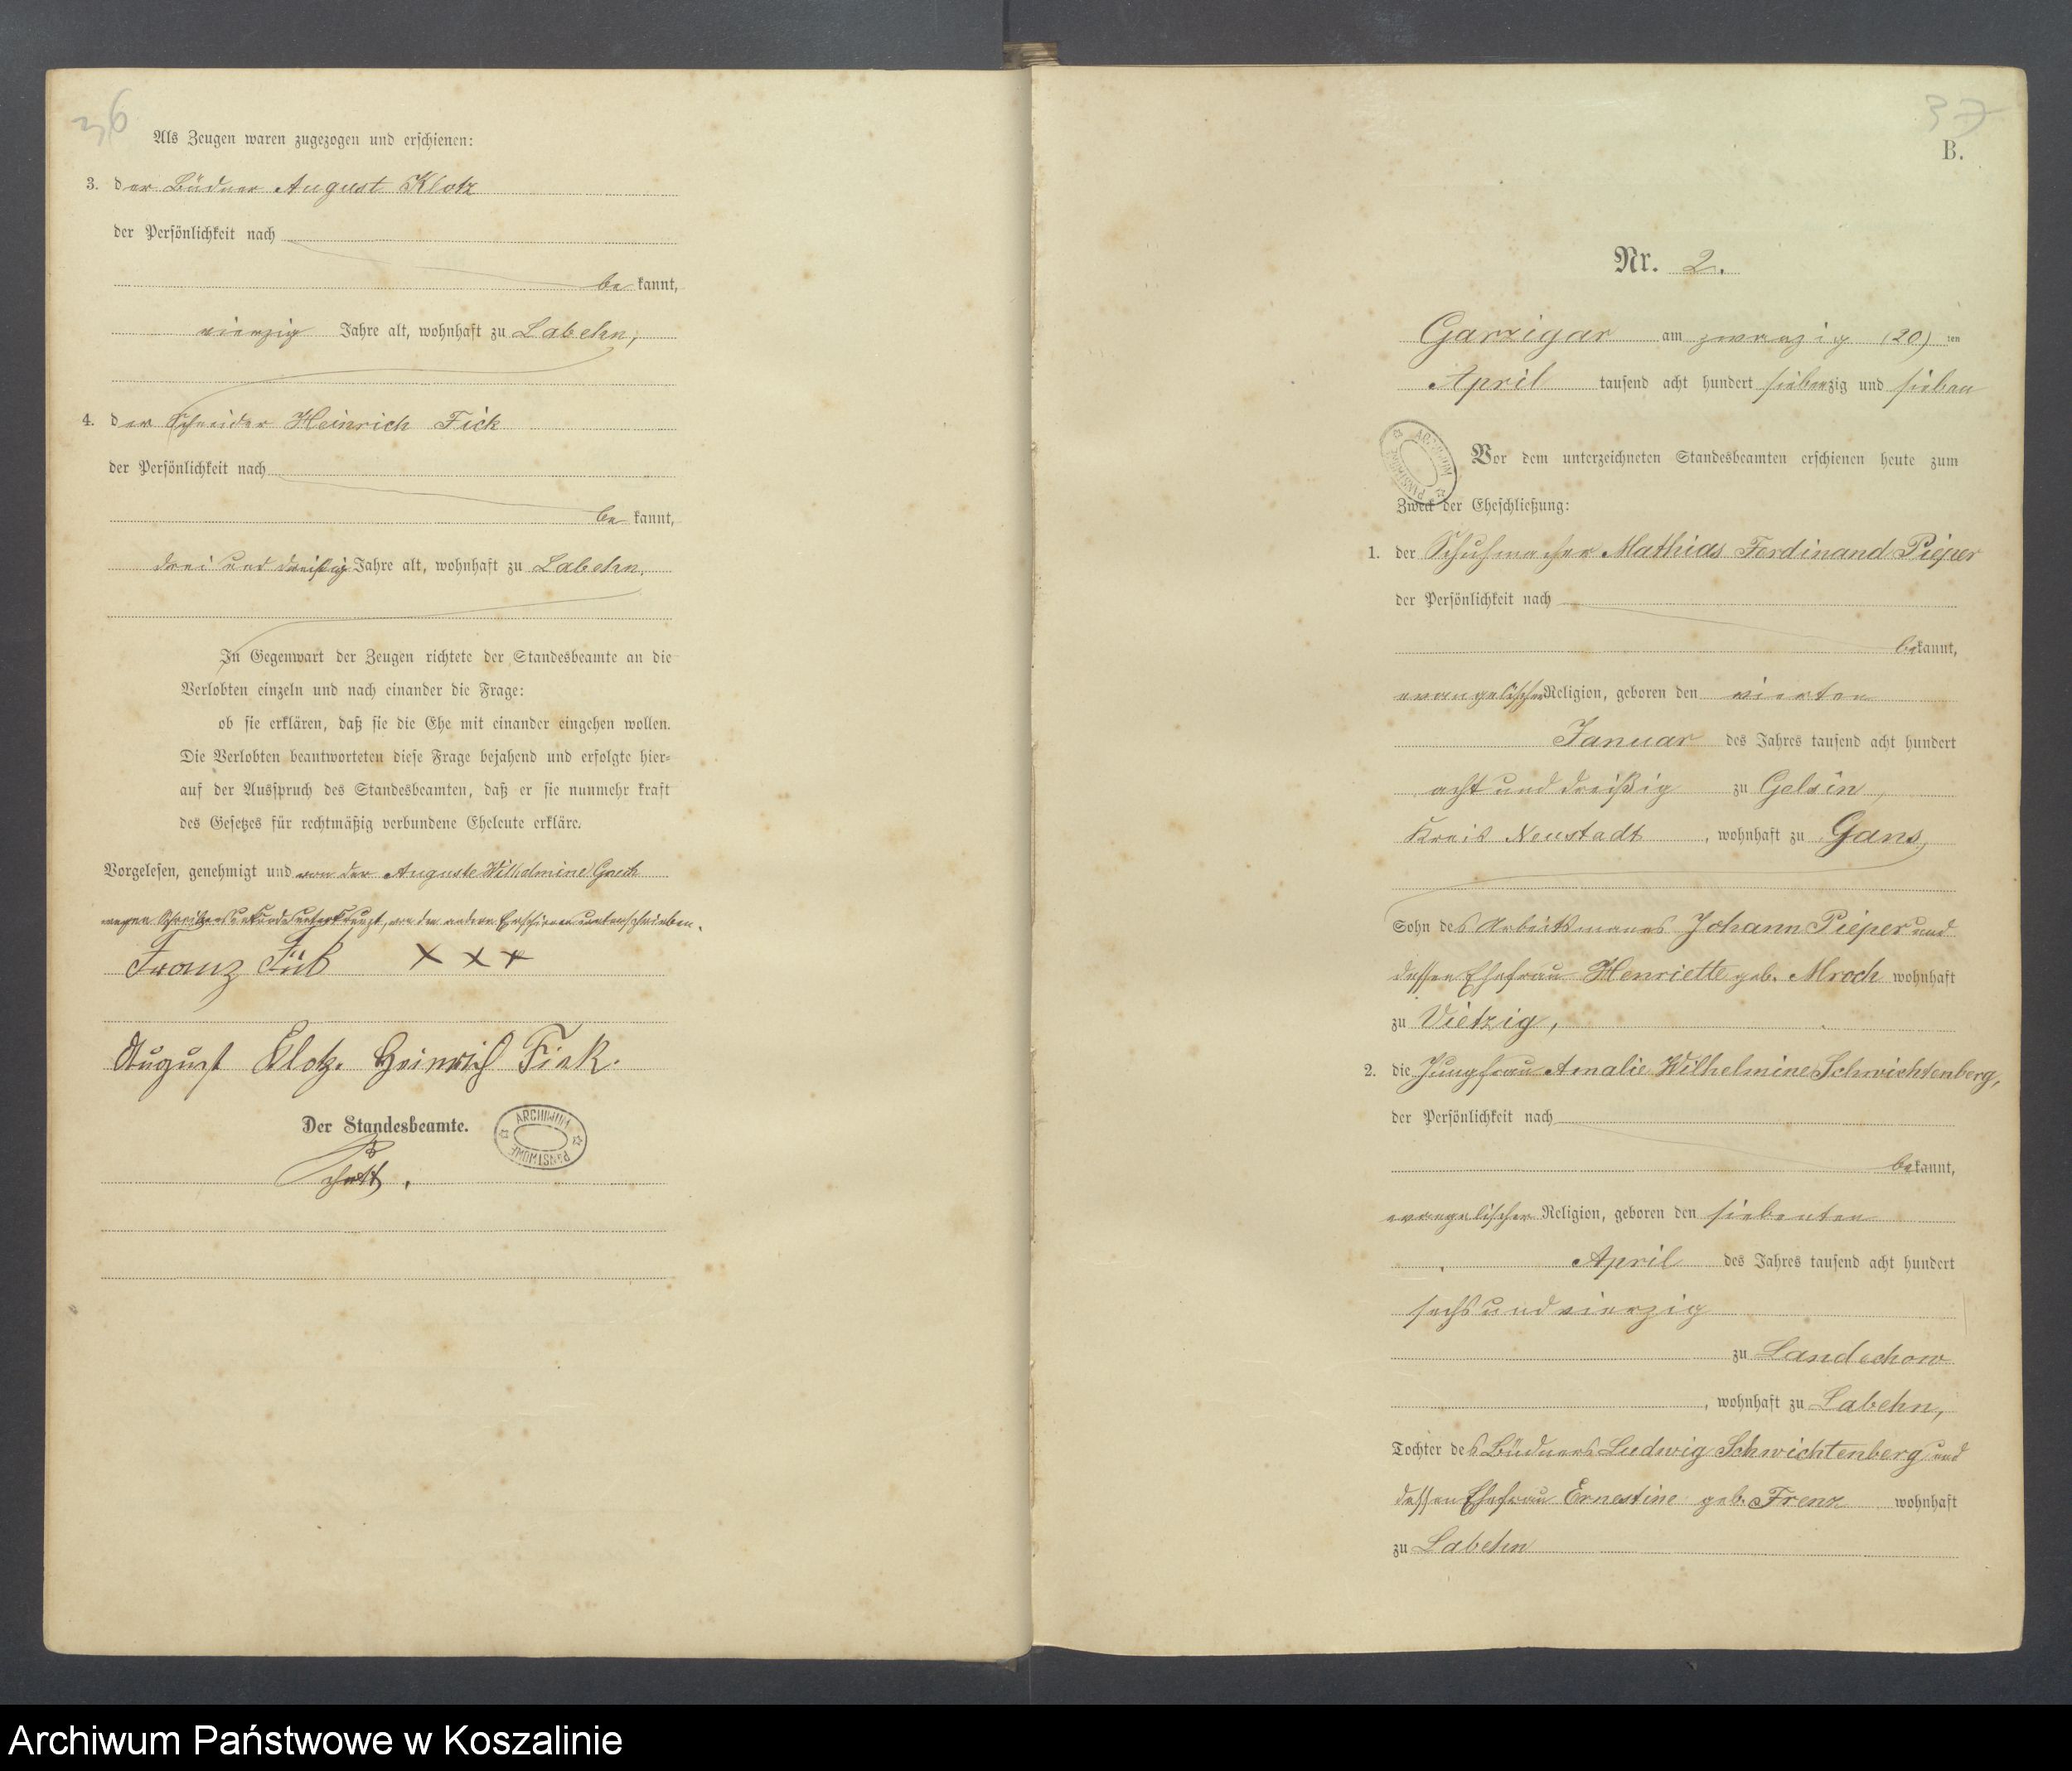 36
Als Zeugen waren zugezogen und erschienen:
3. der Büdner August Klotz
der Persönlichkeit nach
bekannt,
vierzig Jahre alt, wohnhaft zu Labehn,
4. der Schneider Heinrich Fick
der Persönlichkeit nach
bekannt,
drei und dreißig Jahre alt, wohnhaft zu Labehn,
In Gegenwart der Zeugen richtete der Standesbeamte an die
Verlobten einzeln und nach einander die Frage:
ob sie erklären, daß sie die Ehe mit einander eingehen wollen.
Die Verlobten beantworteten diese Frage bejahend und erfolgte hier=
auf der Ausspruch des Standesbeamten, daß er sie nunmehr kraft
des Gesetzes für rechtmäßig verbundene Eheleute erkläre.
Vorgelesen, genehmigt und von der Auguste Wilhelmine
wegen Schreibensunkunde unterkreuzt, von den andern Erschienenen unterschrieben.
Franz XXX
August Klotz. Heinrich Fick.
Der Standesbeamte.
ARCHIWUM PAŃSTWOWE
37
B.
Nr. 2.
Garzigar am zwanzig (20) ten
April tausend acht hundert siebenzig und sieben
Vor dem unterzeichneten Standesbeamten erschienen heute zum
ARCHIWUM PAŃSTWOWE
Zweck der Eheschließung:
1. der Schuhmacher Mathias Ferdinand Pieper
der Persönlichkeit nach
bekannt,
evangelischer Religion, geboren den vierten
Januar des Jahres tausend acht hundert
acht und dreißig zu Gelsin,
Kreis Neustadt, wohnhaft zu Gans,
Sohn des Arbeitsmanns Johann Pieper und
dessen Ehefrau Henriette geb. Mroch wohnhaft
zu Vietzig,
2. die Jungfrau Amalie Wilhelmine Schwichtenberg,
der Persönlichkeit nach
bekannt,
evangelischer Religion, geboren den siebenten
April des Jahres tausend acht hundert
sechs und vierzig
zu Landechow
, wohnhaft zu Labehn,
Tochter des Büdners Ludwig Schwichtenberg und
dessen Ehefrau Ernestine geb. Frenz wohnhaft
zu Labehn
Archiwum Państwowe w Koszalinie